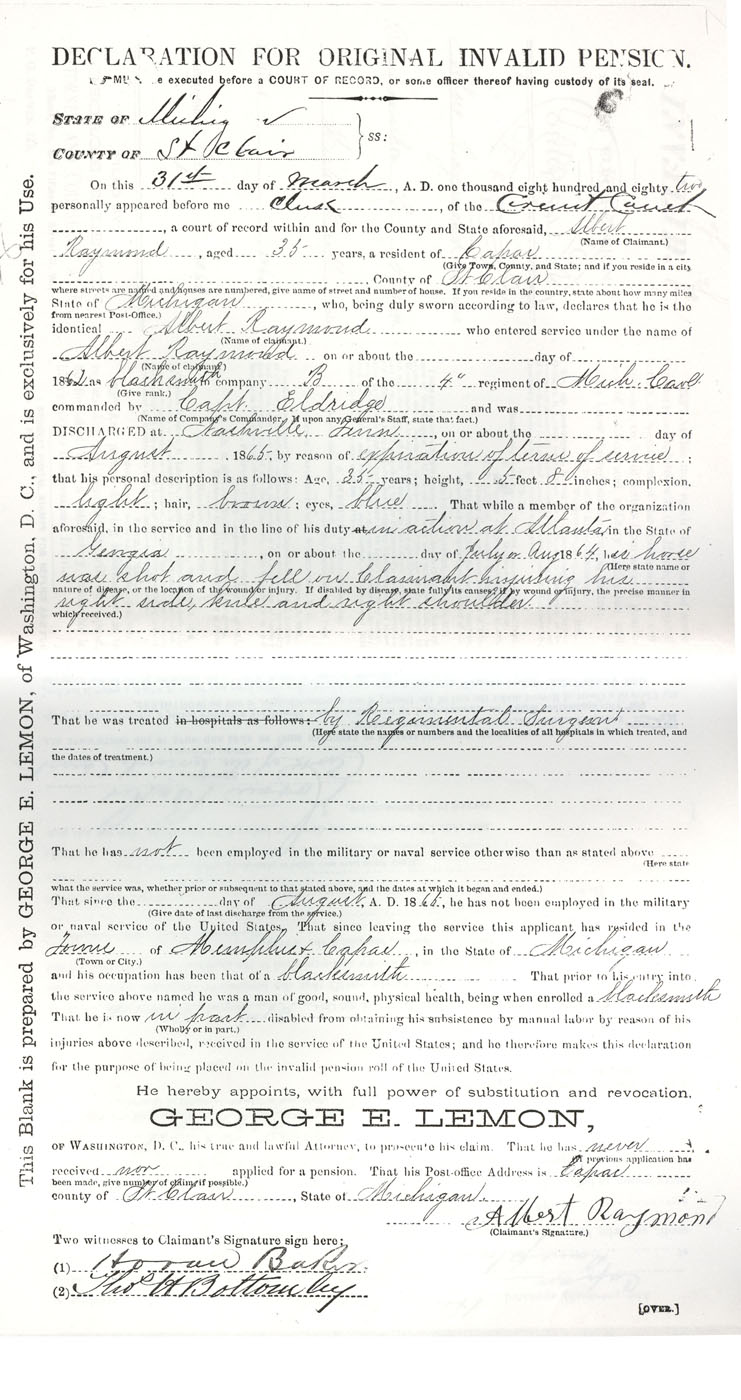 DECLARATION FOR ORIGINAL INVALID PENSION.
MUST be executed before a COURT OF RECORD, or some officer thereof having custody of its seal.
STATE OF Michig
COUNTY OF St Clair } ss:
On this 31st day of March, A. D. one thousand eight hundred and eighty two
personally appeared before me Clerk, of the Circuit Court
, a court of record within and for the County and State aforesaid, Albert
(Name of Claimant.)
Raymond, aged 35 years, a resident of Capac
(Give Town, County, and State; and if you reside in a city
, County of St Clair
where streets are named and houses are numbered, give name of street and number of house. If you reside in the country, state about how many miles
State of Michigan, who, being duly sworn according to law, declares that he is the
from nearest Post-Office.)
identical Albert Raymond who entered service under the name of
(Name of claimant.)
Albert Raymond on or about the day of
(Name of claimant)
1862 as blacksmith in company B of the 4" regiment of Mich. Cavl
(Give rank.)
commanded by Capt. Eldridge and was
(Name of Company's Commander. If upon any General's Staff, state that fact.)
DISCHARGED at Nashville, Tenn, on or about the day of
August, 1865, by reason of expiration of term of service;
that his personal description is as follows: Age, 35 years; height, 5 feet 8 inches; complexion,
light; hair, brown; eyes, blue. That while a member of the organization
aforesaid, in the service and in the line of his duty at in action at Atlanta in the State of
Georgia, on or about the day of July or Aug 1864, his horse
(Here state name or
was shot and fell on Claimant injuring his
nature of disease, or the location of the wound or injury. If disabled by disease, state fully its causes; if by wound or injury, the precise manner in
right side, knee and right shoulder
which received.)
That he was treated in hospitals as follows: by Regimental Surgeon
(Here state the names or numbers and the localities of all hospitals in which treated, and
the dates of treatment.)
That he has not been employed in the military or naval service otherwise than as stated above
(Here state
what the service was, whether prior or subsequent to that stated above, and the dates at which it began and ended.)
That since the day of August, A. D. 1865, he has not been employed in the military
(Give date of last discharge from the service.)
or naval service of the United States. That since leaving the service this applicant has resided in the
Towns of Memphis & Capac, in the State of Michigan
(Town or City.)
and his occupation has been that of a blacksmith That prior to his entry into
the service above named he was a man of good, sound, physical health, being when enrolled a blacksmith
That he is now in part disabled from obtaining his subsistence by manual labor by reason of his
(Wholly or in part.)
injuries above described, received in the service of the United States; and he therefore makes this declaration
for the purpose of being placed on the invalid pension roll of the United States.
He hereby appoints, with full power of substitution and revocation,
GEORGE E. LEMON,
OF WASHINGTON, D. C., his true and lawful Attorney, to prosecute his claim. That he has never
(If previous application has
received nor applied for a pension. That his Post-office Address is Capac
been made, give number of claim if possible.)
county of St Clair, State of Michigan.
Albert Raymond
(Claimant's Signature.)
Two witnesses to Claimant's Signature sign here;
(1) Baker
(2) Thos H Bottomley
[OVER.]
This Blank is prepared by GEORGE E. LEMON, of Washington, D. C., and is exclusively for his Use.